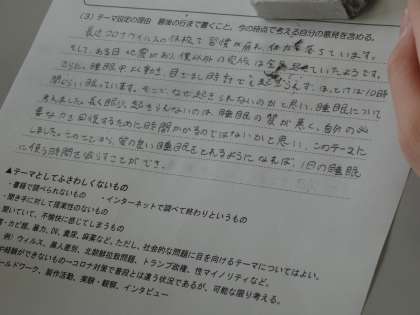 (3) テーマ設定の理由 最後の行まで書くこと。今の時点で考える自分の意見を含める。
長コロナウイルスの休校で習慣が崩れ、体が 落ちています。
そして、ある日地震があり、僕以外の家族は全 ていたようです。
さらに、睡眠中、以動き、目ざまし時計でも起きらえず、ほとんどは10時
間ぐらい眠っています。そこで、なぜ起きられないのかと思い、睡眠について
考えました。長く眠り、起きられないのは、睡眠の質が悪く、自分の必
要な力を回復するために時間がかかるのではないかと思い、このテーマに
しました。このことから、質の良い睡眠をとれるようになれば、1日の睡眠
に使う時間を減らすことができ、
▲テーマとしてふさわしくないもの
・書籍で調べられないもの ・インターネットで調べて終わりというもの
・聞き手に対して提案性のないもの
聞いていて、不愉快に感じてしまうもの
・カビ類、暴力、DV、糞尿、麻薬など。ただし、社会的な問題に目を向けるテーマについてはよい。
例）ウィルス、黒人差別、北朝鮮拉致問題、トランプ政権、性マイノリティなど。
経験ができないもの→コロナ対策で普段とは違う状況であるが、可能な限り考える。
ールドワーク、製作活動、実験・観察、インタビュー